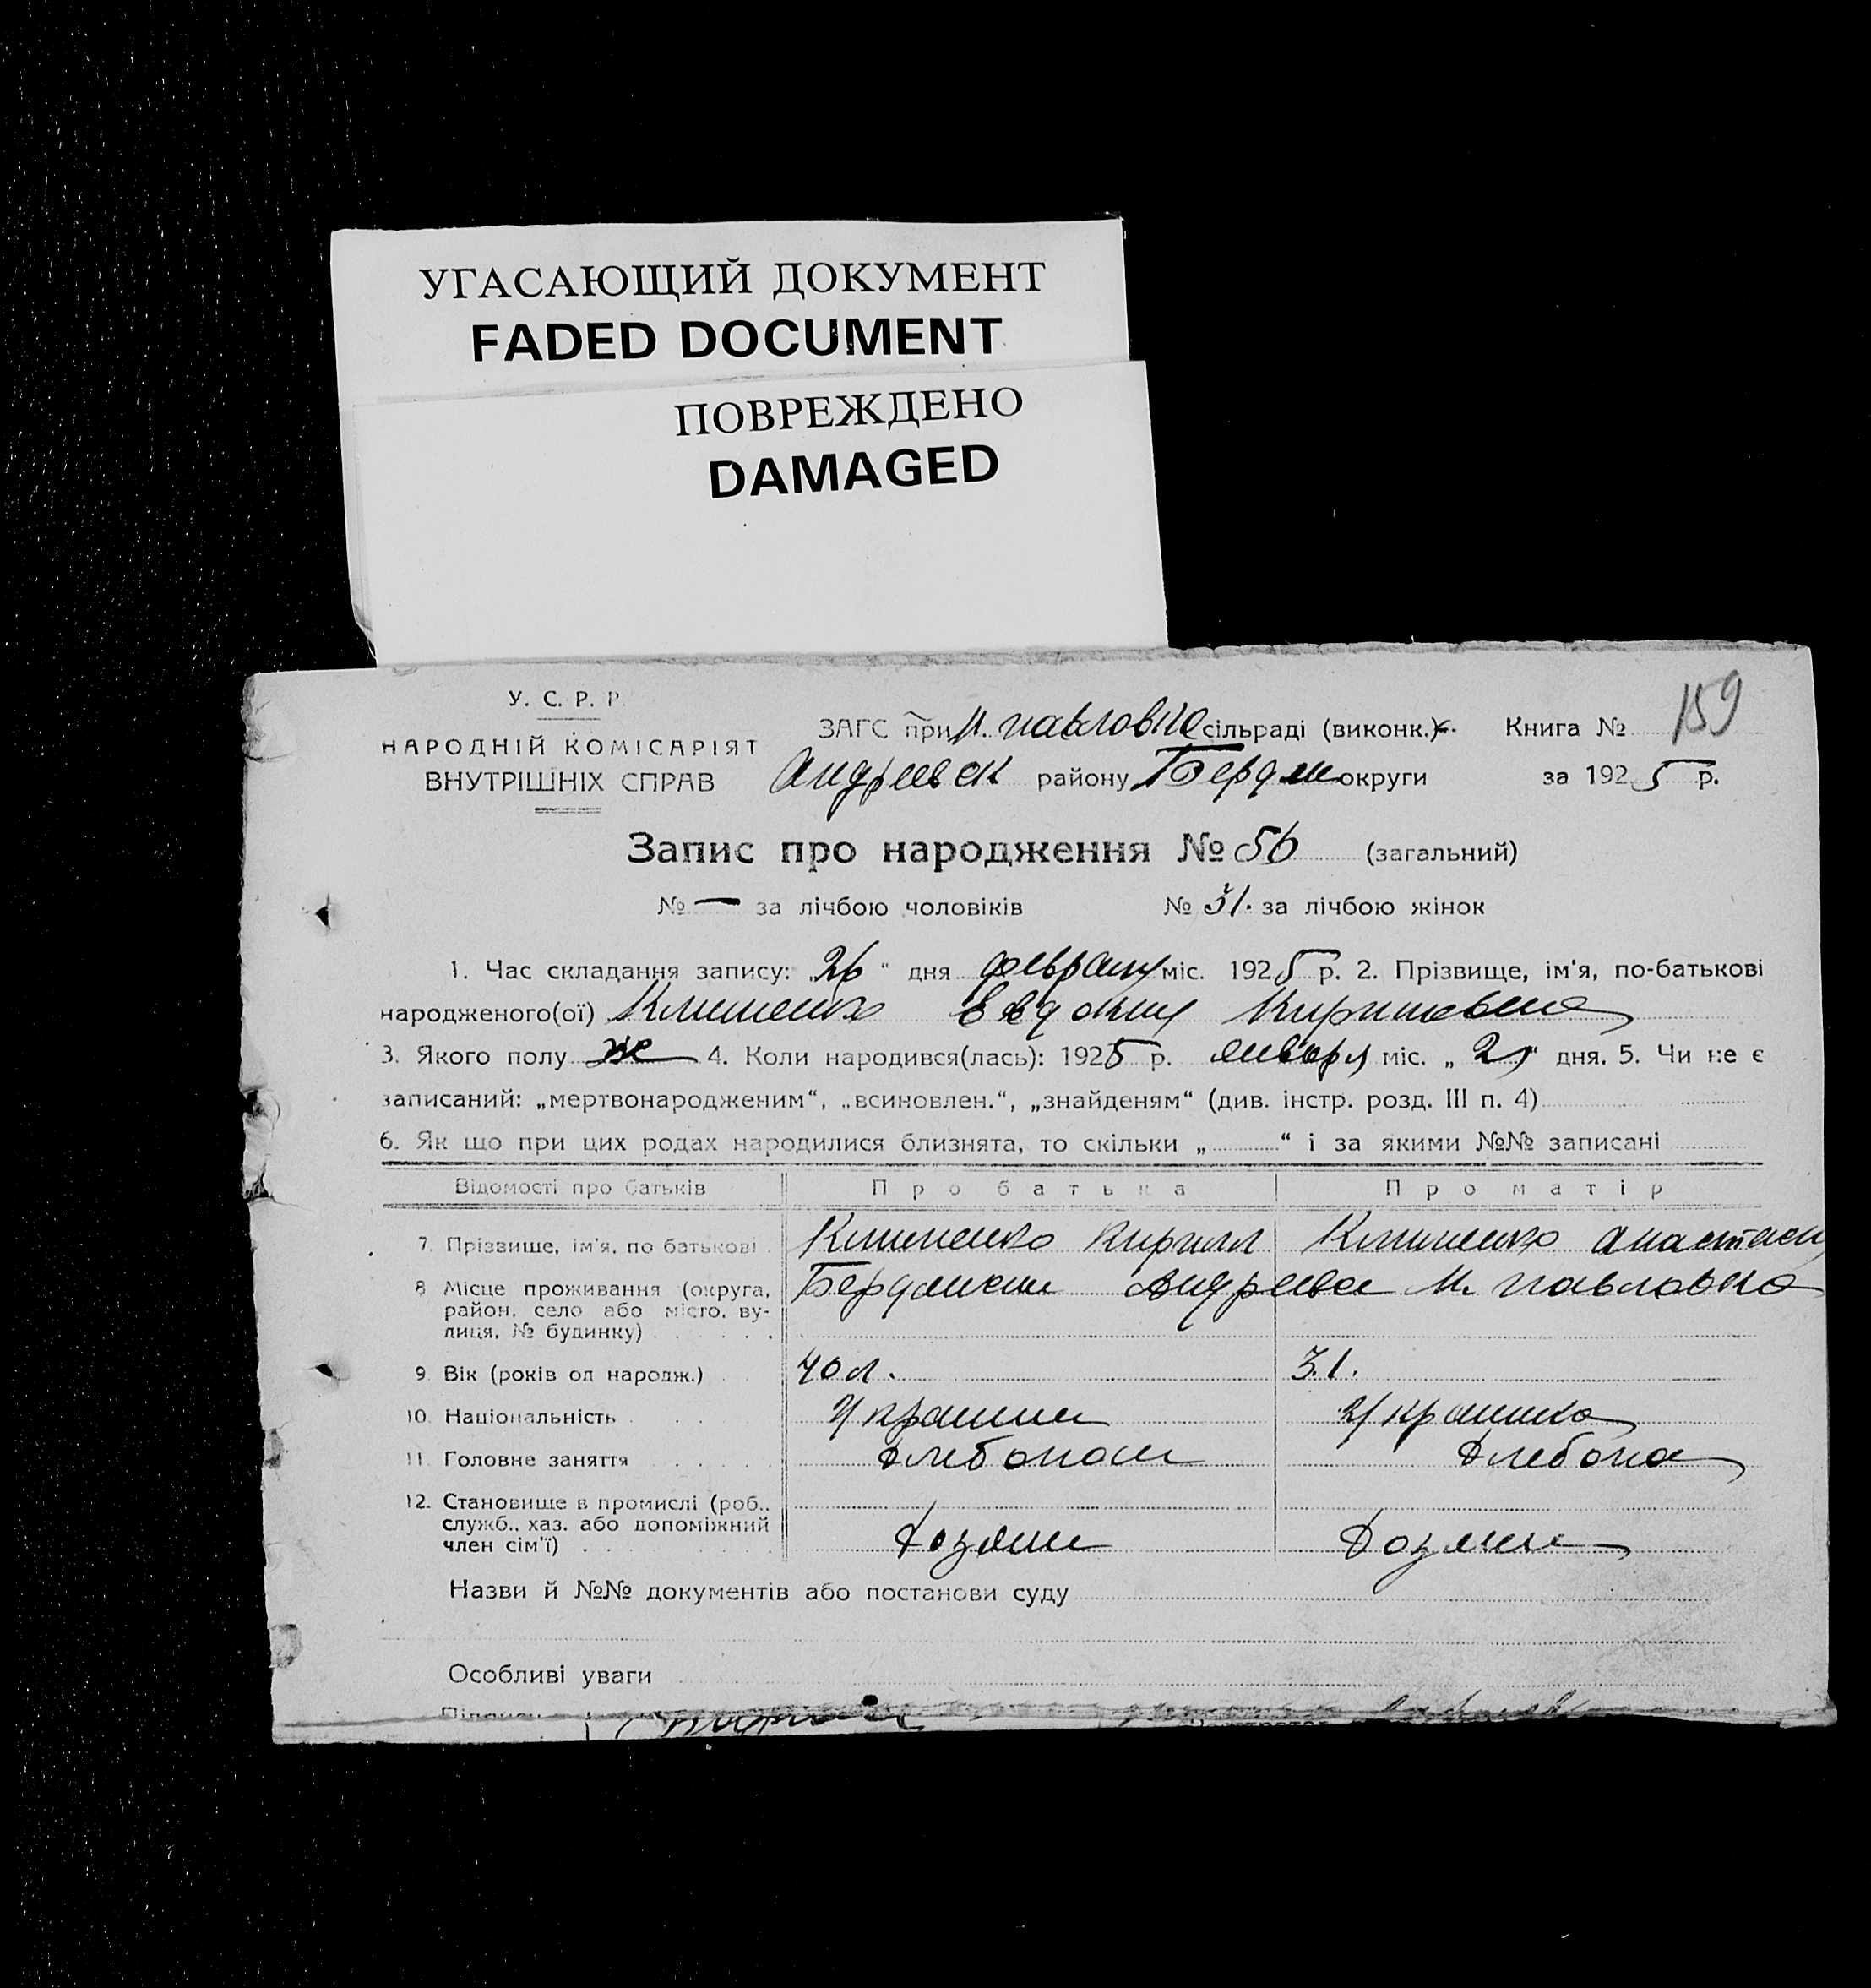 УГАСАЮЩИЙ ДОКУМЕНТ
FADED DOCUMENT
ПОВРЕЖДЕНО
DAMAGED
У. С. Р. Р.
НАРОДНІЙ КОМІСАРІЯТ
ВНУТРІШНІХ СПРАВ
159
ЗАГС при Н. павловке сільраді (виконк.) Книга №
Андреевск району Бердян округи за 1925 р.
Запис про народження № 56 (загальний)
№ — за лічбою чоловіків № 31. за лічбою жінок
1. Час складання запису: „26“ дня февраля міс. 1925 р. 2. Прізвище, ім'я, по-батькові
народженого(ої) Клименко Евдокия Кириловна
3. Якого полу ж 4. Коли народився(лась): 1925 р. января міс. „ “ дня. 5. Чи не є
записаний: „мертвонародженим“, „всиновлен.“, „знайденям“ (див. інстр. розд. III п. 4)
6. Як що при цих родах народилися близнята, то скільки „ “ і за якими №№ записані
Відомості про батьків Про батька Про матір
7. Прізвище, ім'я, по батькові Клименко Кирилл Клименко Анастаси
8 Місце проживання (округа, Бердянски Андреевс Н. павловка
район, село або місто, ву-
лиця, № будинку)
9. Вік (років од народж.) 40 л. 31.
10. Національність Украине Украинка
11. Головне заняття Хлебопаш Хлебопа
12. Становище в промислі (роб.,
служб., хаз. або допоміжний
член сім'ї) Хозяин Хозяин
Назви й №№ документів або постанови суду
Особливі уваги